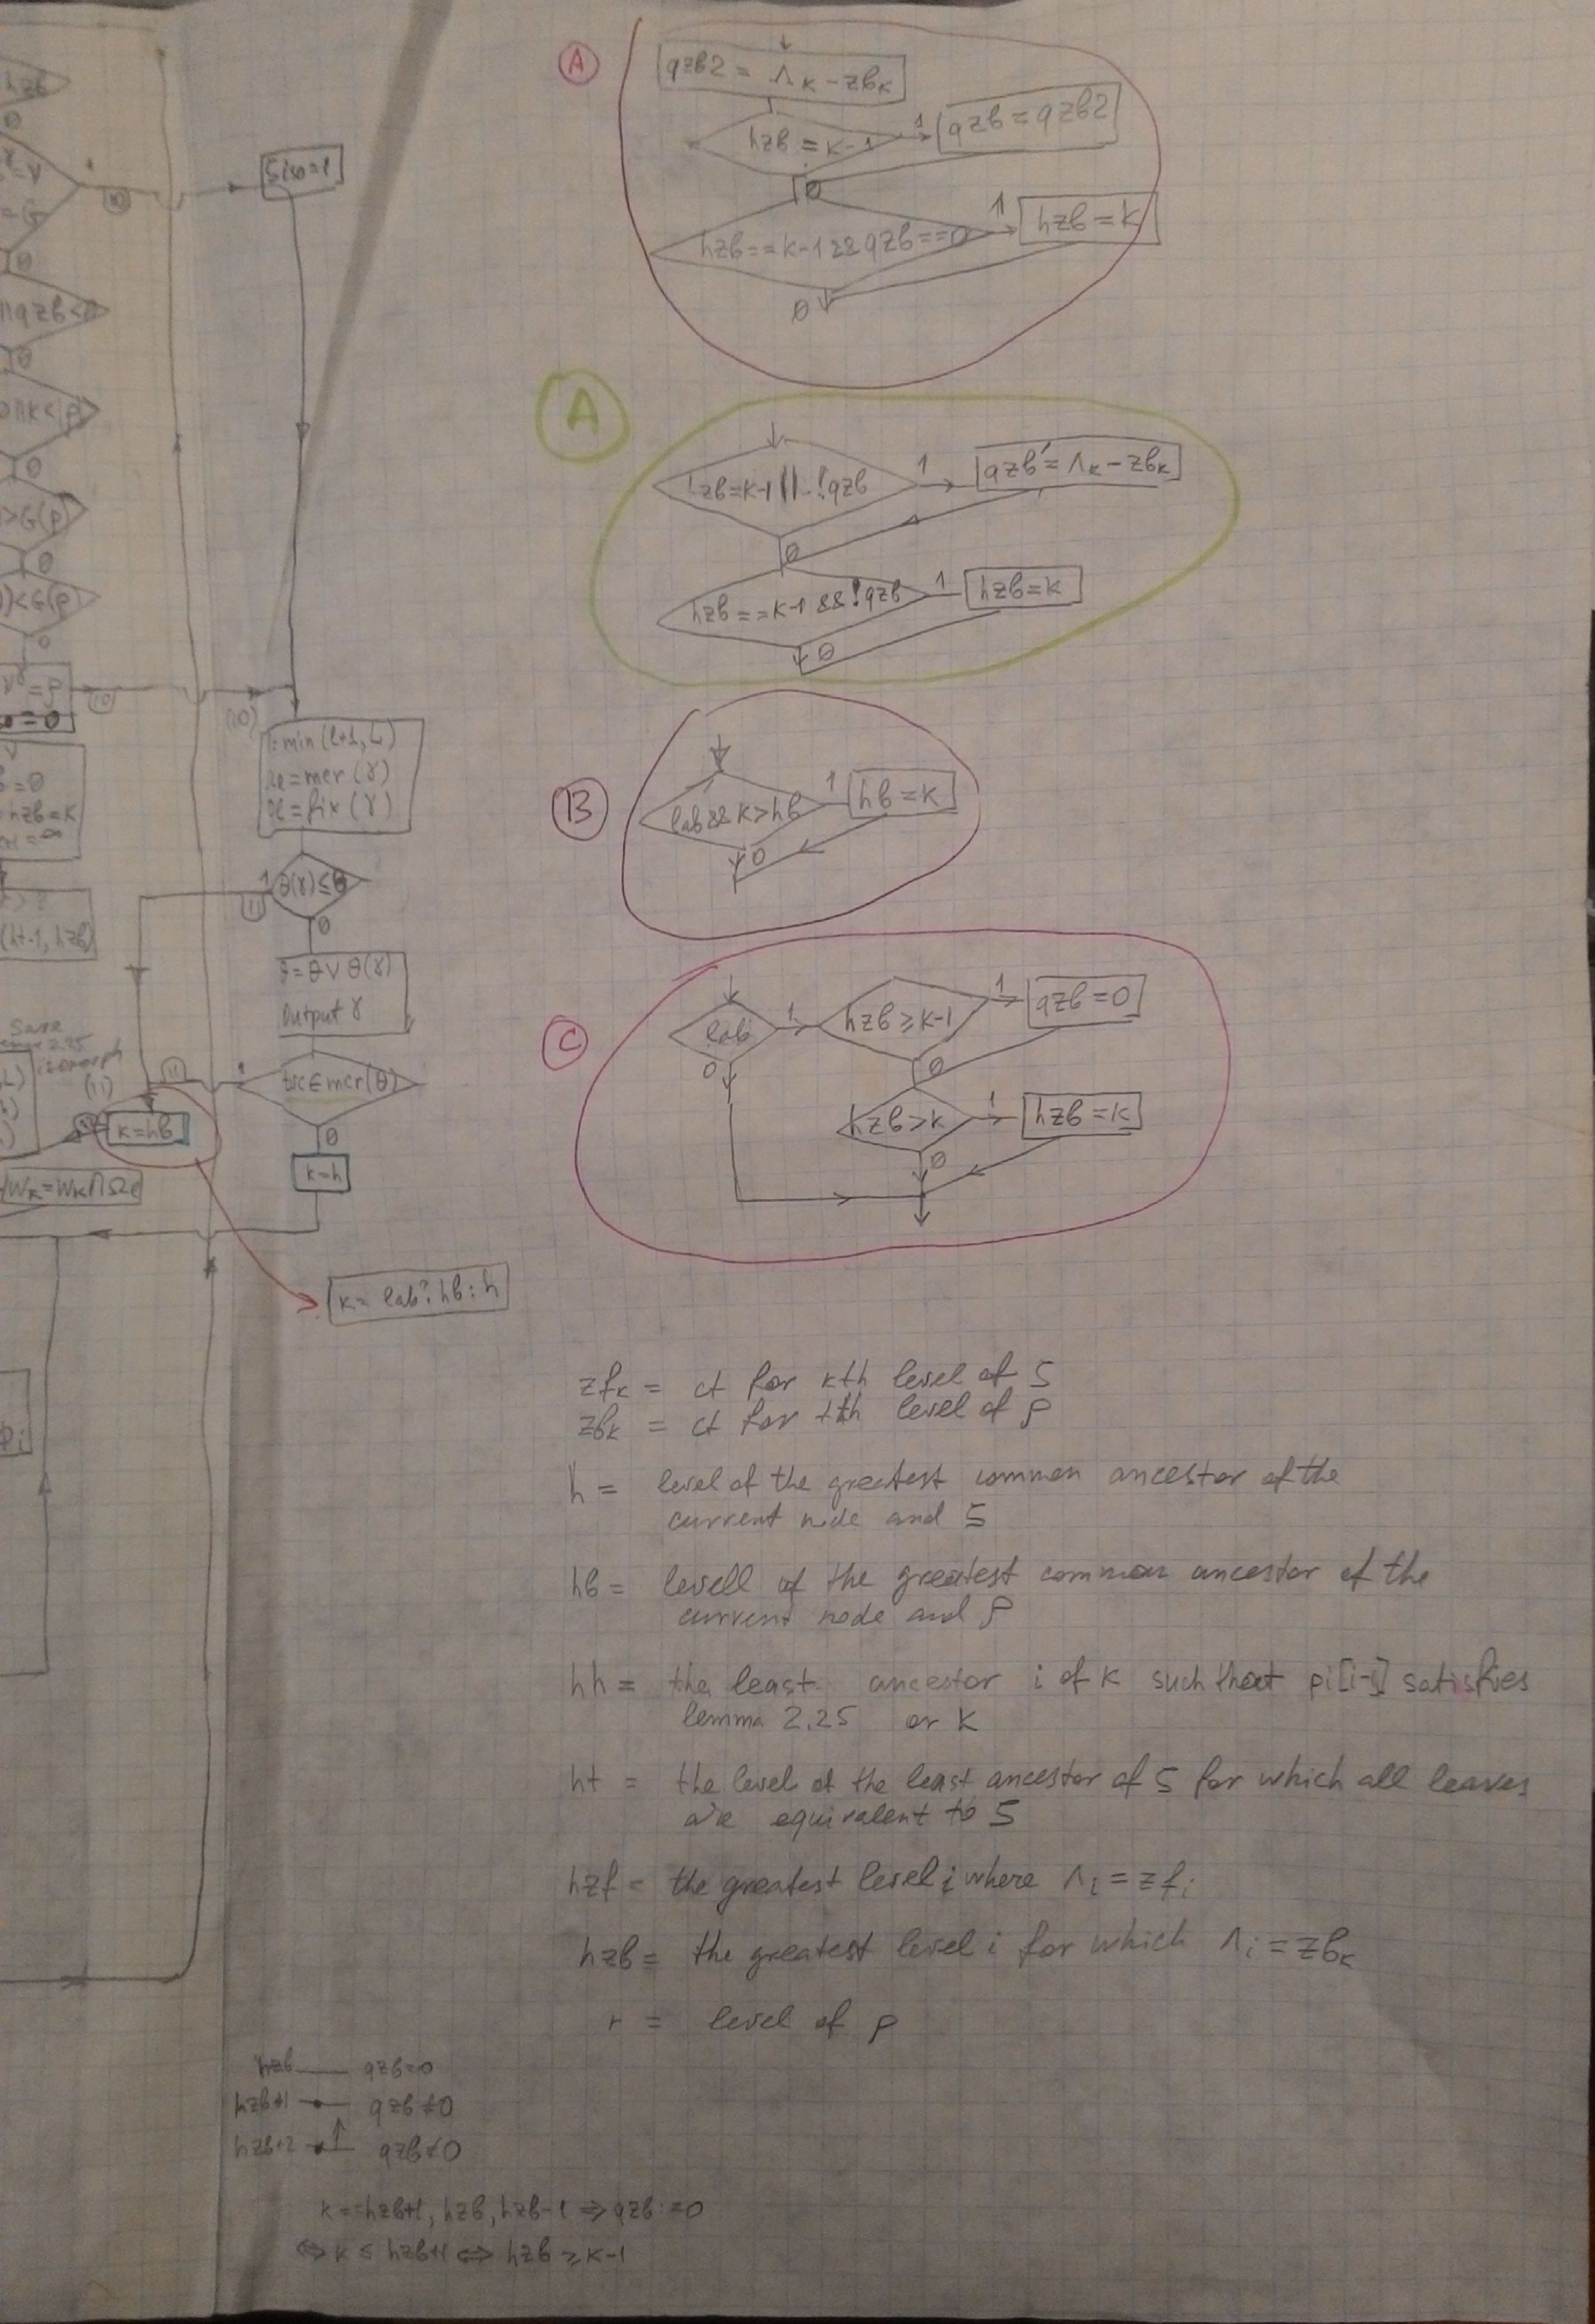 hzb
0
=V
=G
0
qzb<0
0
k<ρ
0
>G(ρ)
0
)<G(ρ)
0
=ρ
=0
=0
hzb=k
=∞
(ht-1, hzb)
Save
isomorph
(11)
k=hb
W_K=W_K∩Ω_ℓ
=1
(10)
=min(ℓ+1, L)
=mcr(γ)
=fix(γ)
1
θ(γ)≤θ
11
0
=θ∨θ(γ)
Output γ
11
tsc∈mcr(θ)
0
k=h
k=lab?hb:h
A
qzb2 = Λ_K - zb_K
hzb = k-1
1
qzb = qzb2
0
hzb == k-1 && qzb == 0
1
hzb = k
0
A
zb=k-1 || !qzb
1
qzb = Λ_K - zb_K
0
hzb == k-1 && !qzb
1
hzb=k
0
B
lab && k>hb
1
hb=k
0
C
lab
1
hzb ≥ k-1
1
qzb=0
0
0
hzb>k
1
hzb=k
0
zf_K = ct for kth level of ζ
zb_K = ct for kth level of ρ
h = level of the greatest common ancestor of the
current node and ζ
hb = levell of the greatest common ancestor of the
current node and ρ
hh = the least ancestor i of k such that pi[i-1] satisfies
lemma 2.25 or k
ht = the level of the least ancestor of ζ for which all leaves
are equivalent to ζ
hzf = the greatest level i where Λ_i = zf_i
hzb = the greatest level i for which Λ_i = zb_K
r = level of ρ
hzb qzb=0
hzb+1 qzb≠0
hzb+2 qzb≠0
k==hzb+1, hzb, hzb-1 ⇒ qzb:=0
⇔ k ≤ hzb+1 ⇔ hzb ≥ k-1